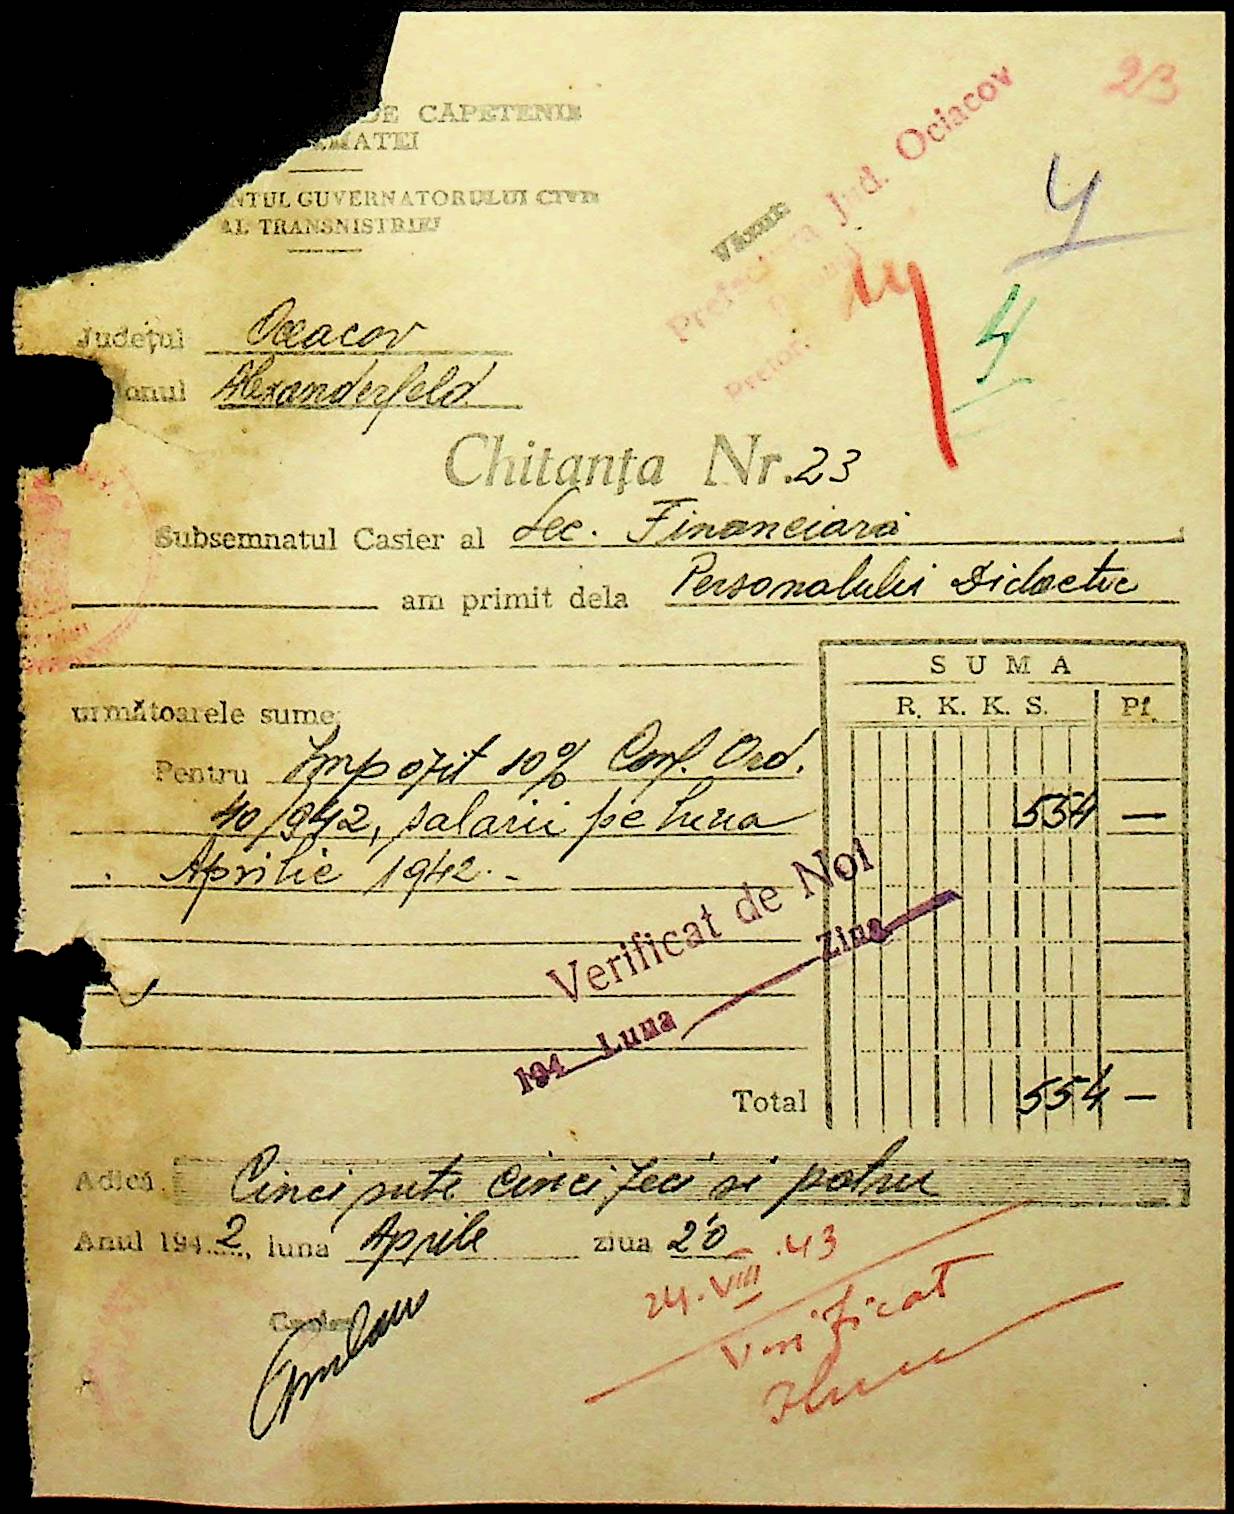 23
DE CAPETENIE
MATEI
NTUL GUVERNATORULUI CIVIL
AL TRANSNISTRIEI
Jud. Ociacov
Văzut
4
14
4
Județul Oceacov
onul Alexanderfeld
Chitanța Nr. 23
Subsemnatul Casier al Sec. Financiara
am primit dela Personalului Didactic
SUMA
următoarele sume: R. K. K. S. Pf.
Pentru Impozit 10% Conf. Ord.
40/942, salarii pe luna 554 —
Aprilie 1942.-
Verificat de Noi
194 Luna Ziua
Total 554 —
Adică Cinci sute cinci zeci si patru
Anul 1942, luna Aprile ziua 20
24.VIII.43
Casier
Verificat